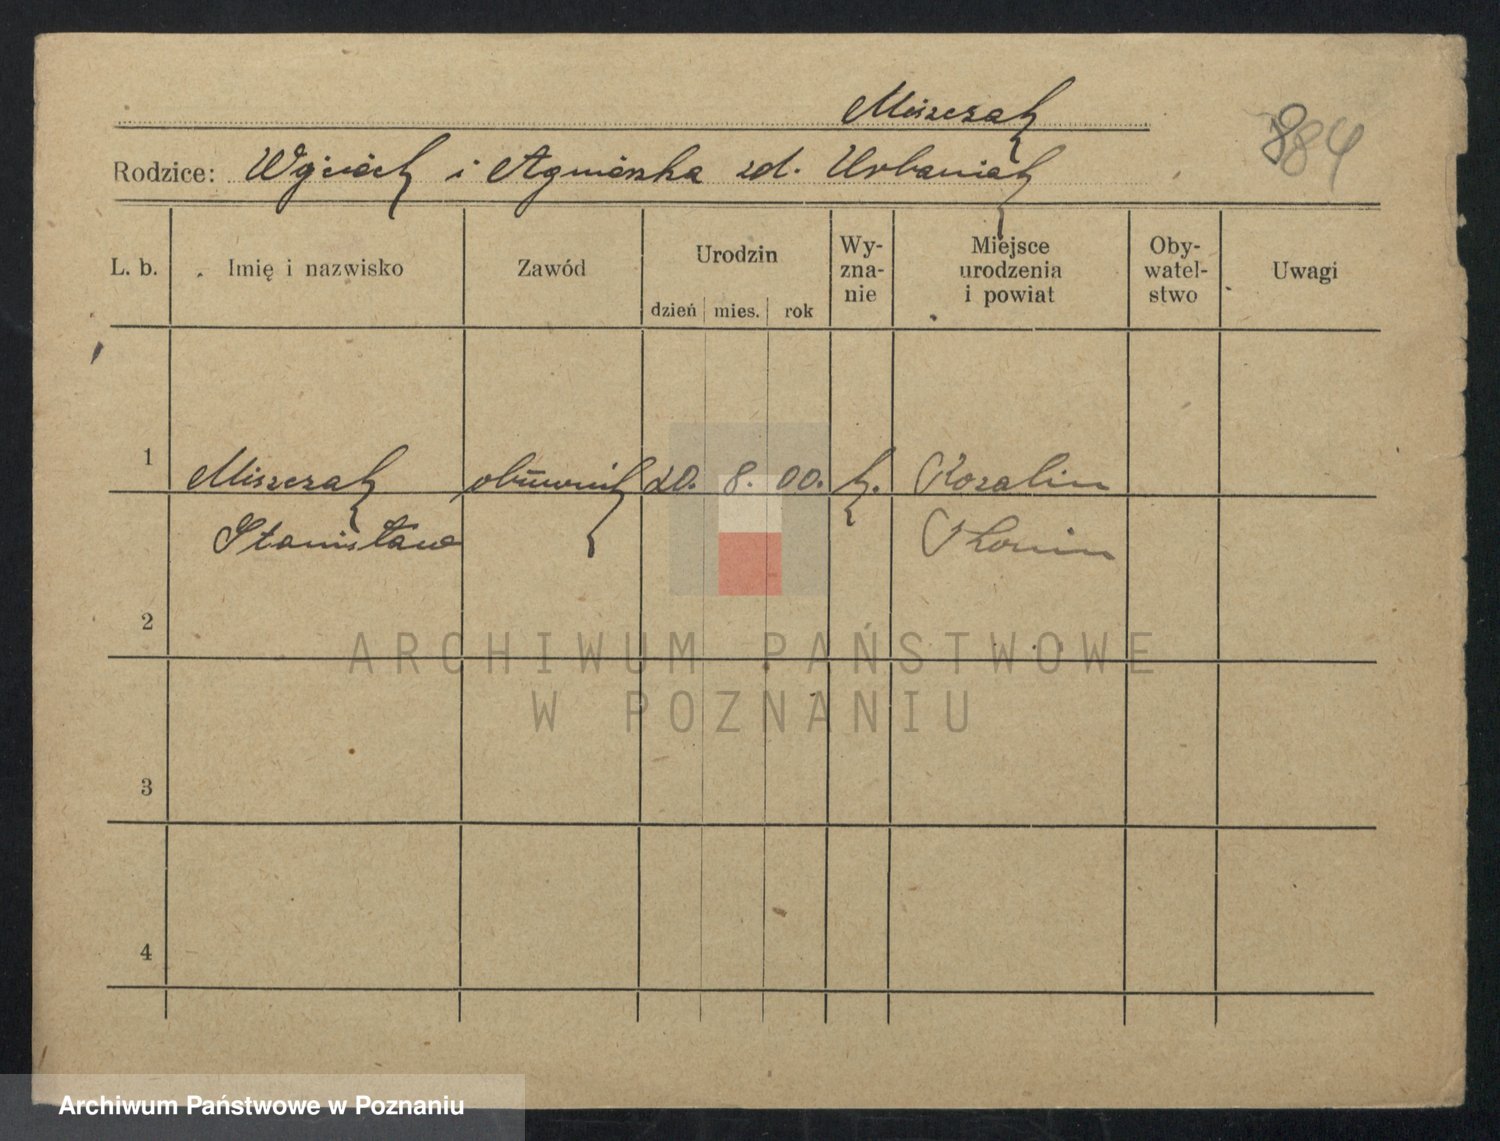 Miszczak
884
Rodzice: Wojciech i Agnieszka zd. Urbaniak
L. b.
Imię i nazwisko
Zawód
Urodzin
dzień mies. rok
Wy-
zna-
nie
Miejsce
urodzenia
i powiat
Oby-
watel-
stwo
Uwagi
1 Miszczak obuwnik 20. 8. 00. k. Rozalin
Stanisław Konin
2
3
4
ARCHIWUM PAŃSTWOWE
W POZNANIU
Archiwum Państwowe w Poznaniu